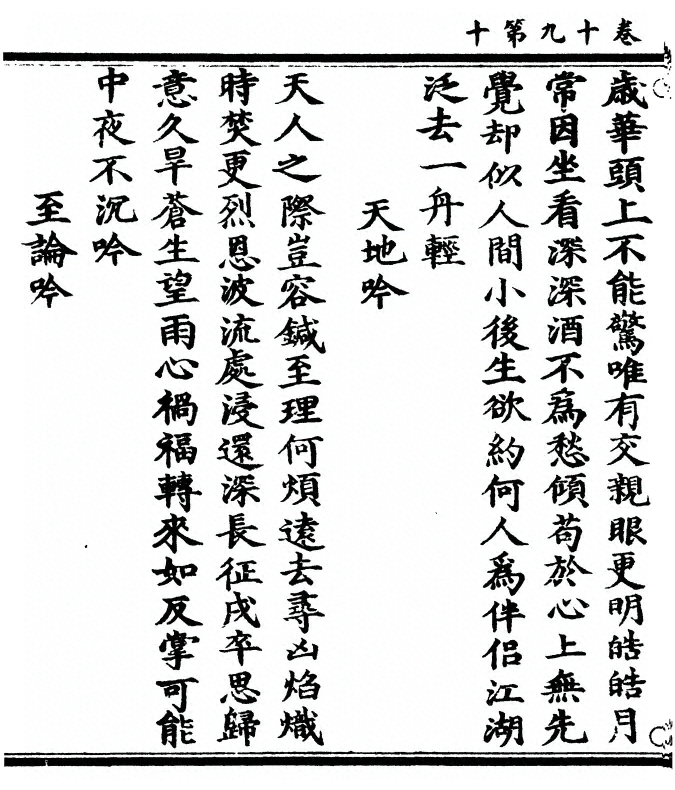 卷十九第十
歲華頭上不能驚唯有交親眼更明皓皓月
常因坐看深深酒不爲愁傾苟於心上無先
覺却似人間小後生欲約何人爲伴侶江湖
泛去一舟輕
天地吟
天人之際豈容鍼至理何煩遠去尋凶焰熾
時焚更烈恩波流處浸還深長征戍卒思歸
意久旱蒼生望雨心禍福轉來如反掌可能
中夜不沉吟
至論吟